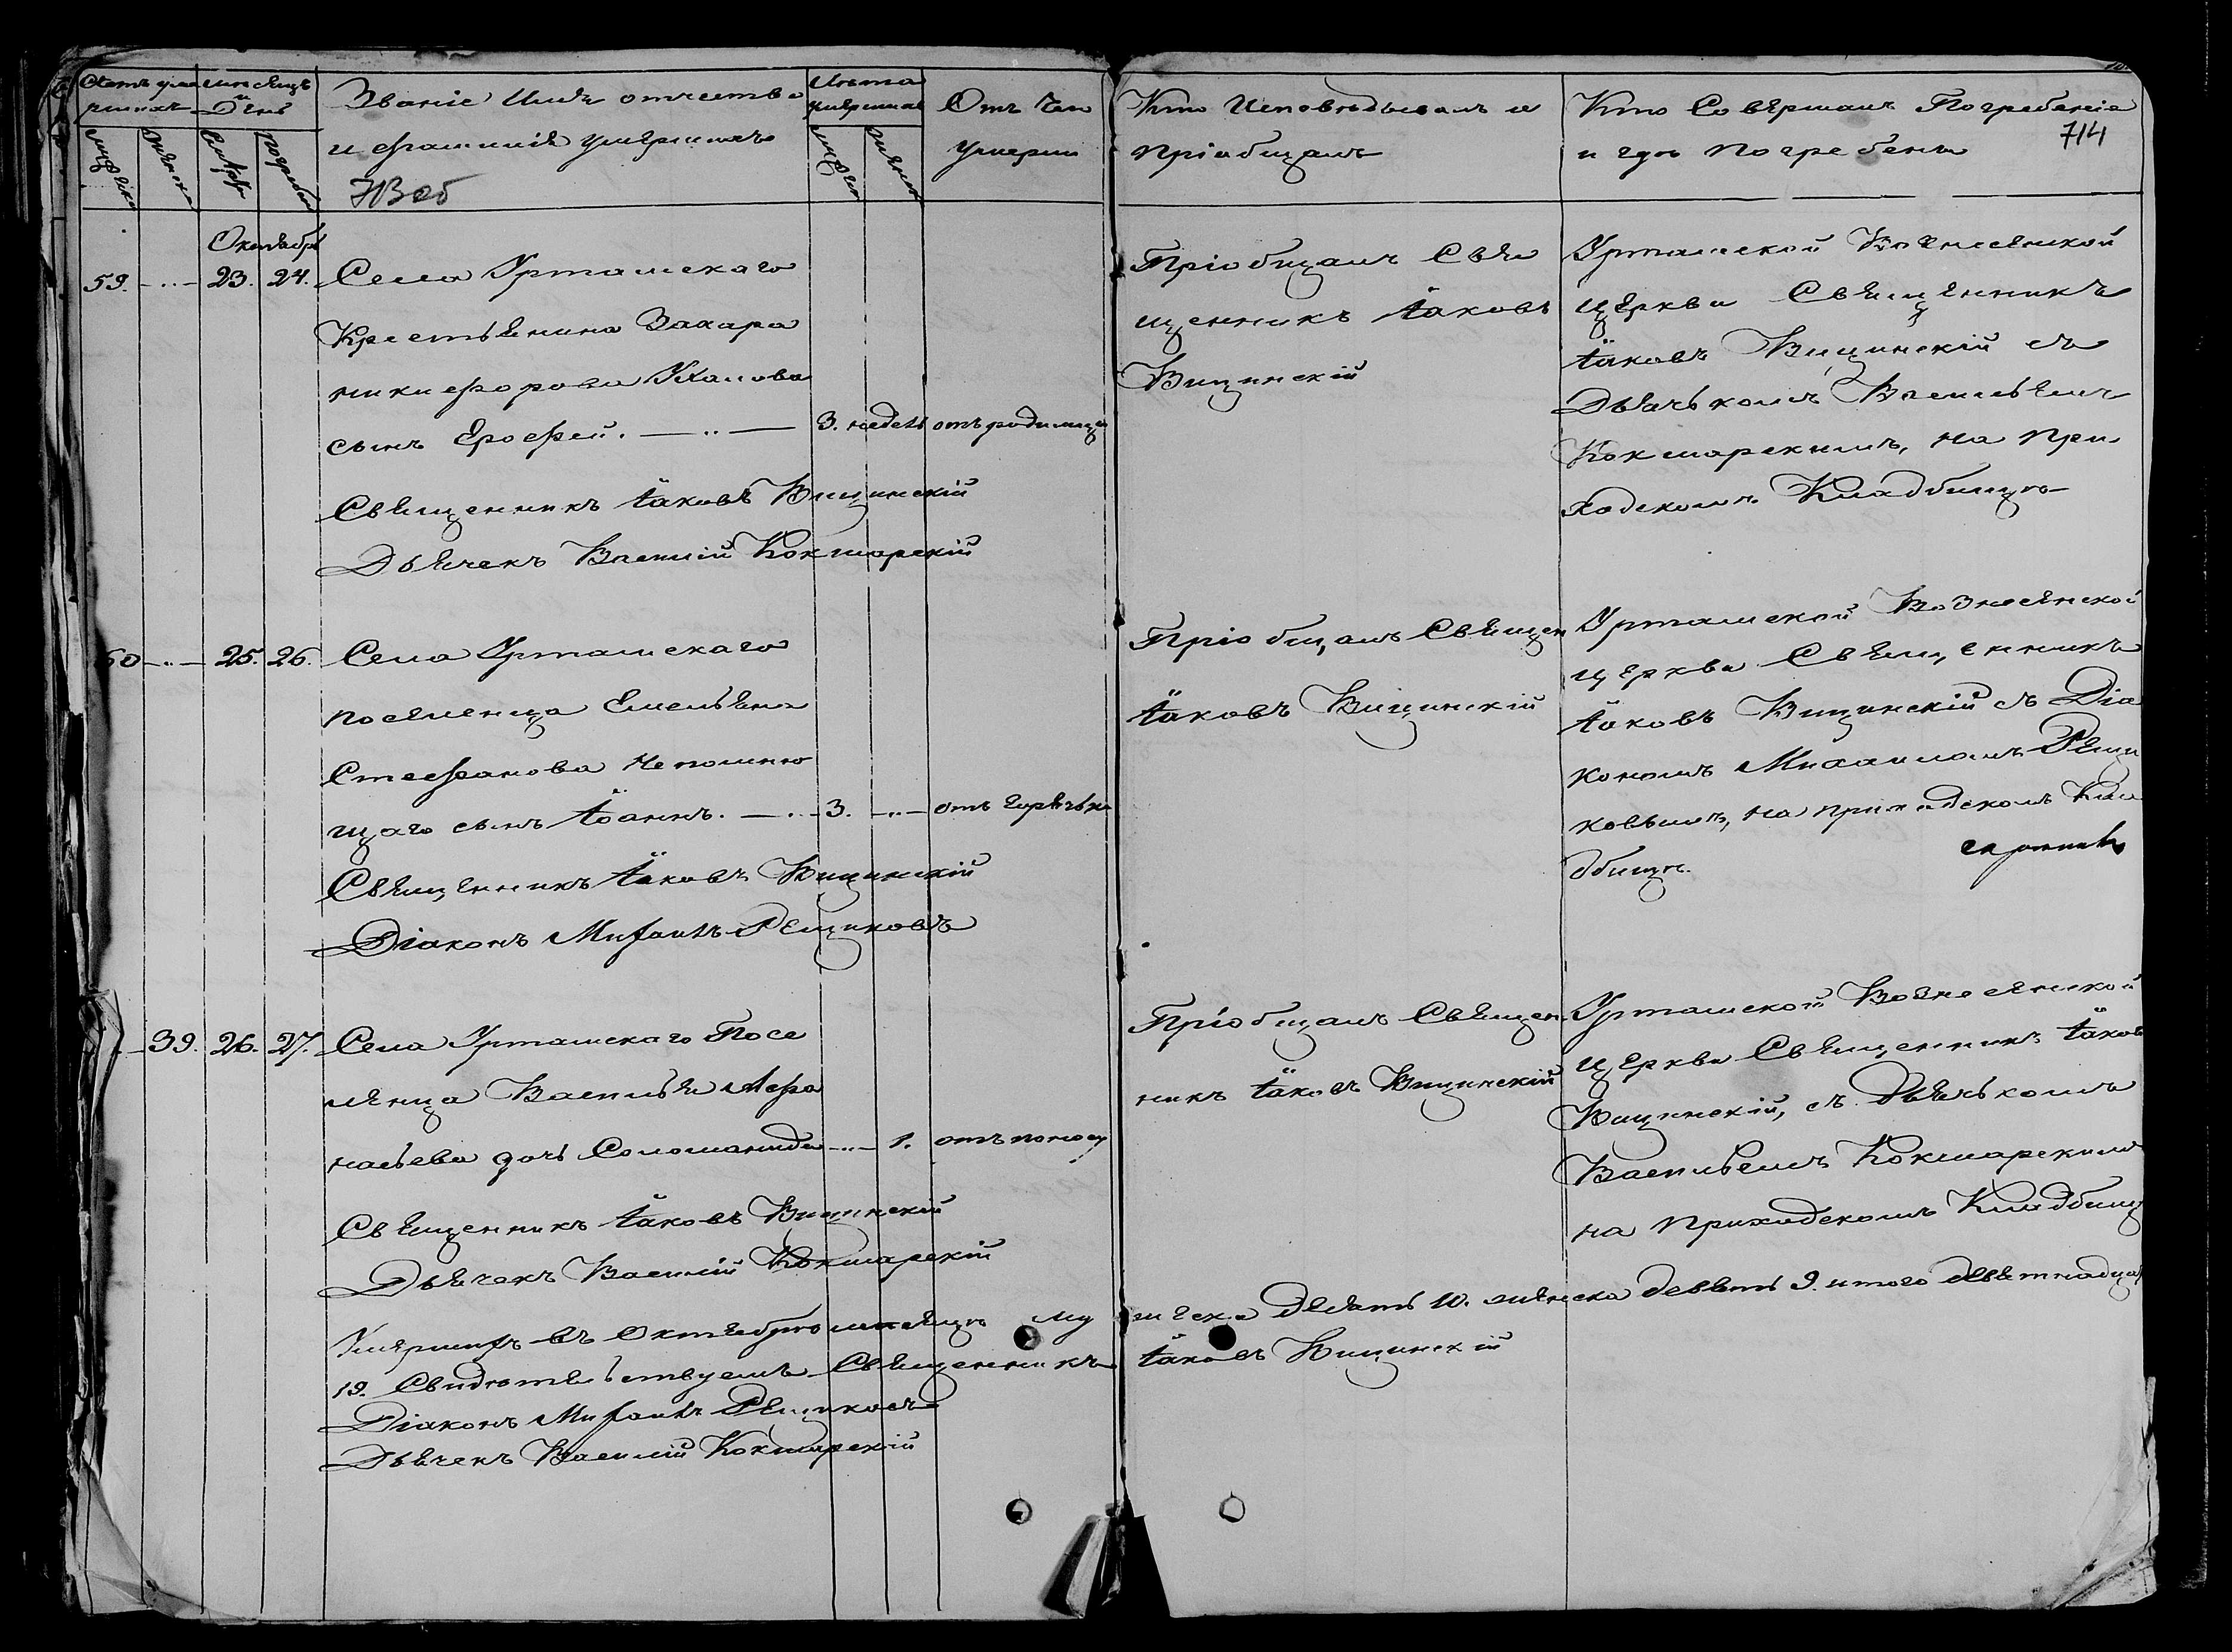 Счетъ умершихъ
Мѣсяцъ и День
Званіе Имя отчество
и фамилія умершихъ
Лѣта умершихъ
Отъ чего умерли
Кто Исповѣдывалъ и
пріобщалъ
Кто Совершалъ Погребеніе
и гдѣ погребены
714
Октября
59. 23. 24. Села Урташскаго
Крестьянина Захара
никифорова
сынъ Ерофей. 3. недель отъ родимца
Священникъ Іаковъ Вицинскій
Дьячекъ Василій Кокшарскій
Пріобщалъ Свя
щенникъ Іаковъ
Вицинскій
Урташской Вознесенской
церкви Священникъ
Іаковъ Вицинскій съ
Дьячькомъ Васильемъ
Кокшарскимъ, на При
ходскомъ Кладбищѣ
60 25. 26. Села Урташскаго
поселенца Емельяна
Стефанова Непомню
щаго сынъ Іоаннъ. 3. отъ горячьки
Священникъ Іаковъ Вицинскій
Діаконъ Михаилъ Рещиковъ
Пріобщалъ Священ
Іаковъ Вицинскій
Урташской Вознесенской
церкви Священникъ
Іаковъ Вицинскій съ Діа
кономъ Михаиломъ Рещи
ковымъ, на приходскомъ Кла
дбищѣ.
39. 26. 27. Села Урташскаго Посе
ленца Василья Афо
насьева дочь Соломанида 1. отъ поносу
Священникъ Іаковъ Вицинскій
Дьячекъ Василій Кокшарскій
Пріобщалъ Священ
никъ Іаковъ Вицинскій
Урташской Вознесенской
церкви Священникъ Іаковъ
Вицинскій, съ Дьячькомъ
Васильемъ Кокшарскимъ
на Приходскомъ Кладбищ
Умершихъ въ Октябрѣ мѣсяцѣ му
жеска десять 10. женска девять 9. итого девятнадцат
19. Свидѣтельствуемъ Священникъ Іаковъ Вицинскій
Діаконъ Михаилъ Рещиковъ
Дьячекъ Василій Кокшарскій